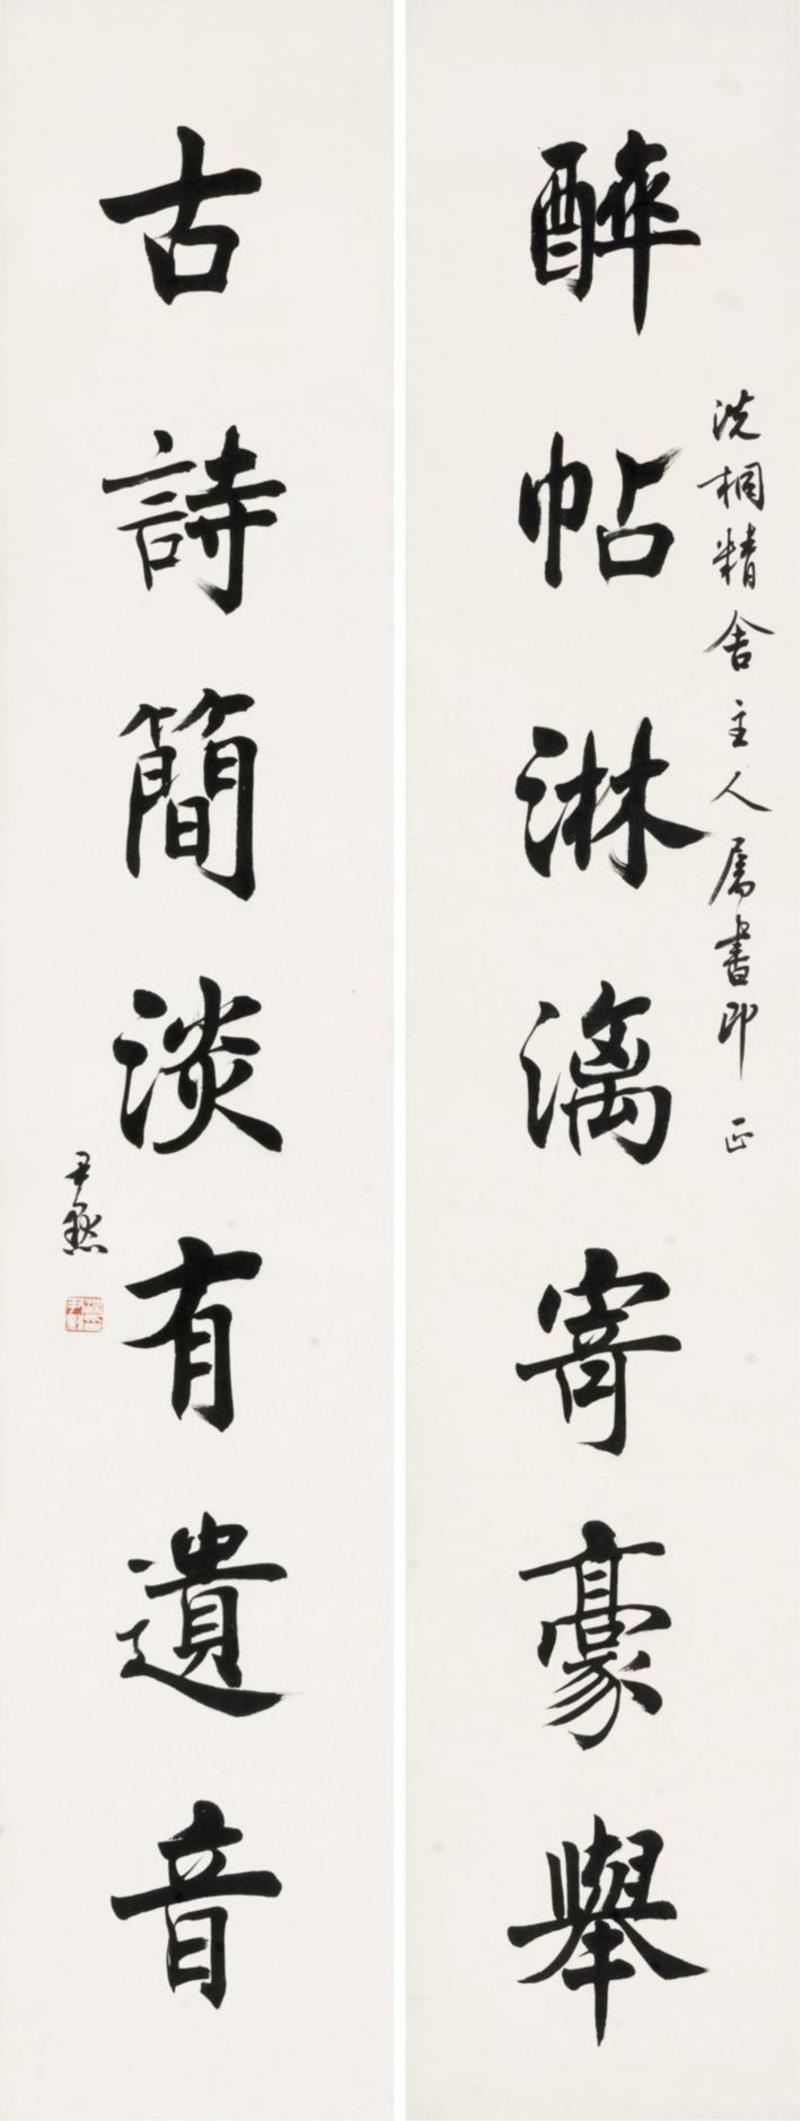 醉帖淋漓寄豪舉
洗桐精舍主人屬書即正
古詩簡淡有遺音
尹默